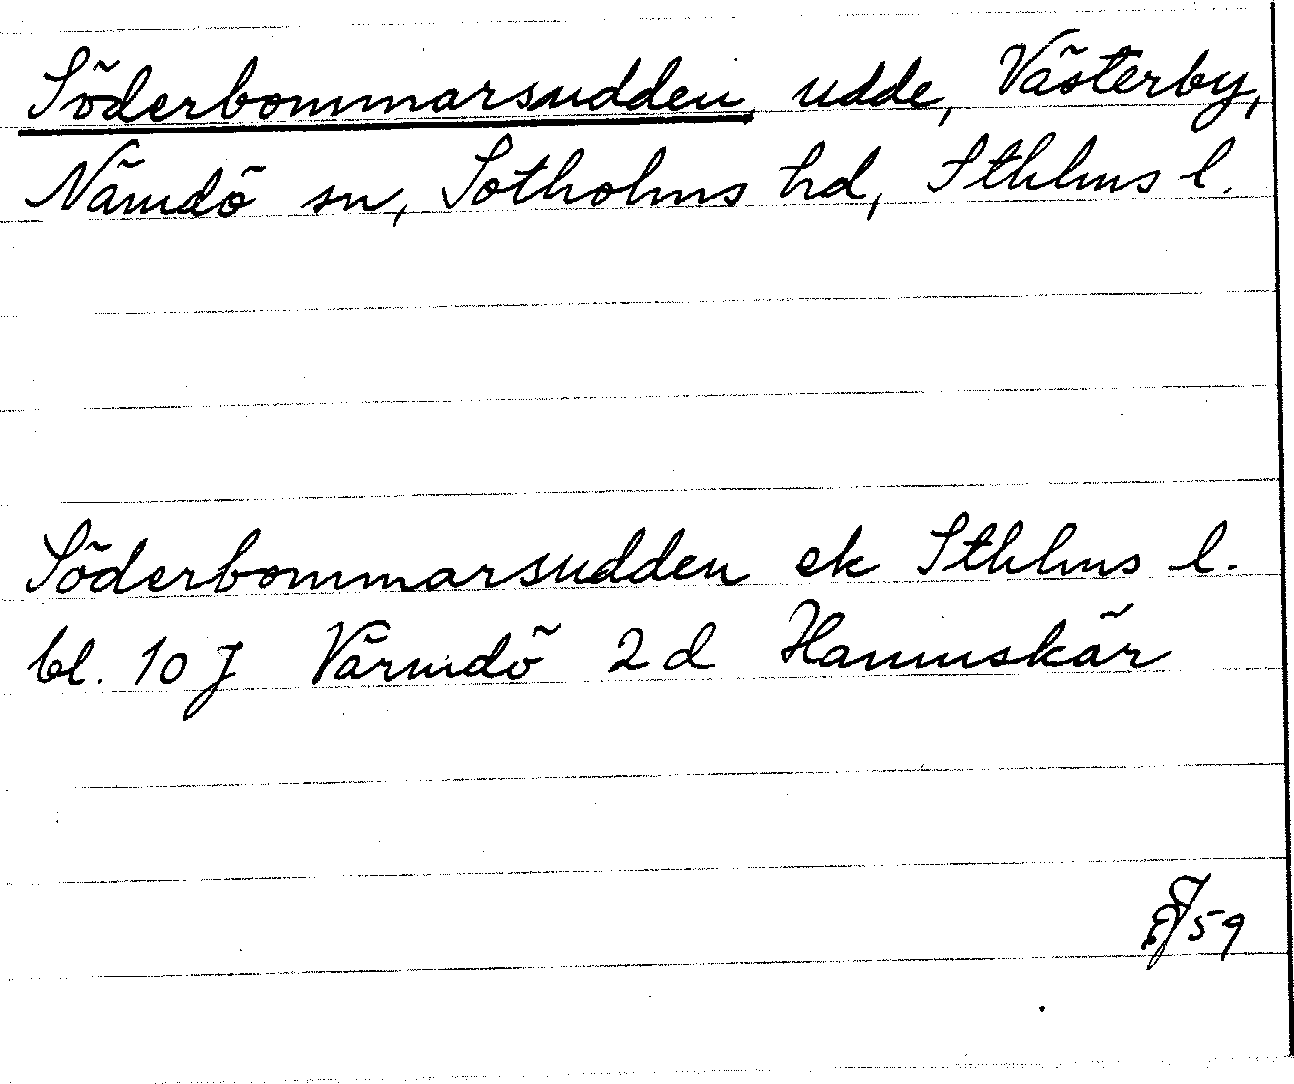 Söderbommarsudden, udde, Västerby,
Nämdö sn, Sotholms hd, Sthlms l.
Söderbommarsudden ek Sthlms l.
bl. 10 J Värmdö 2 d Hamnskär
59